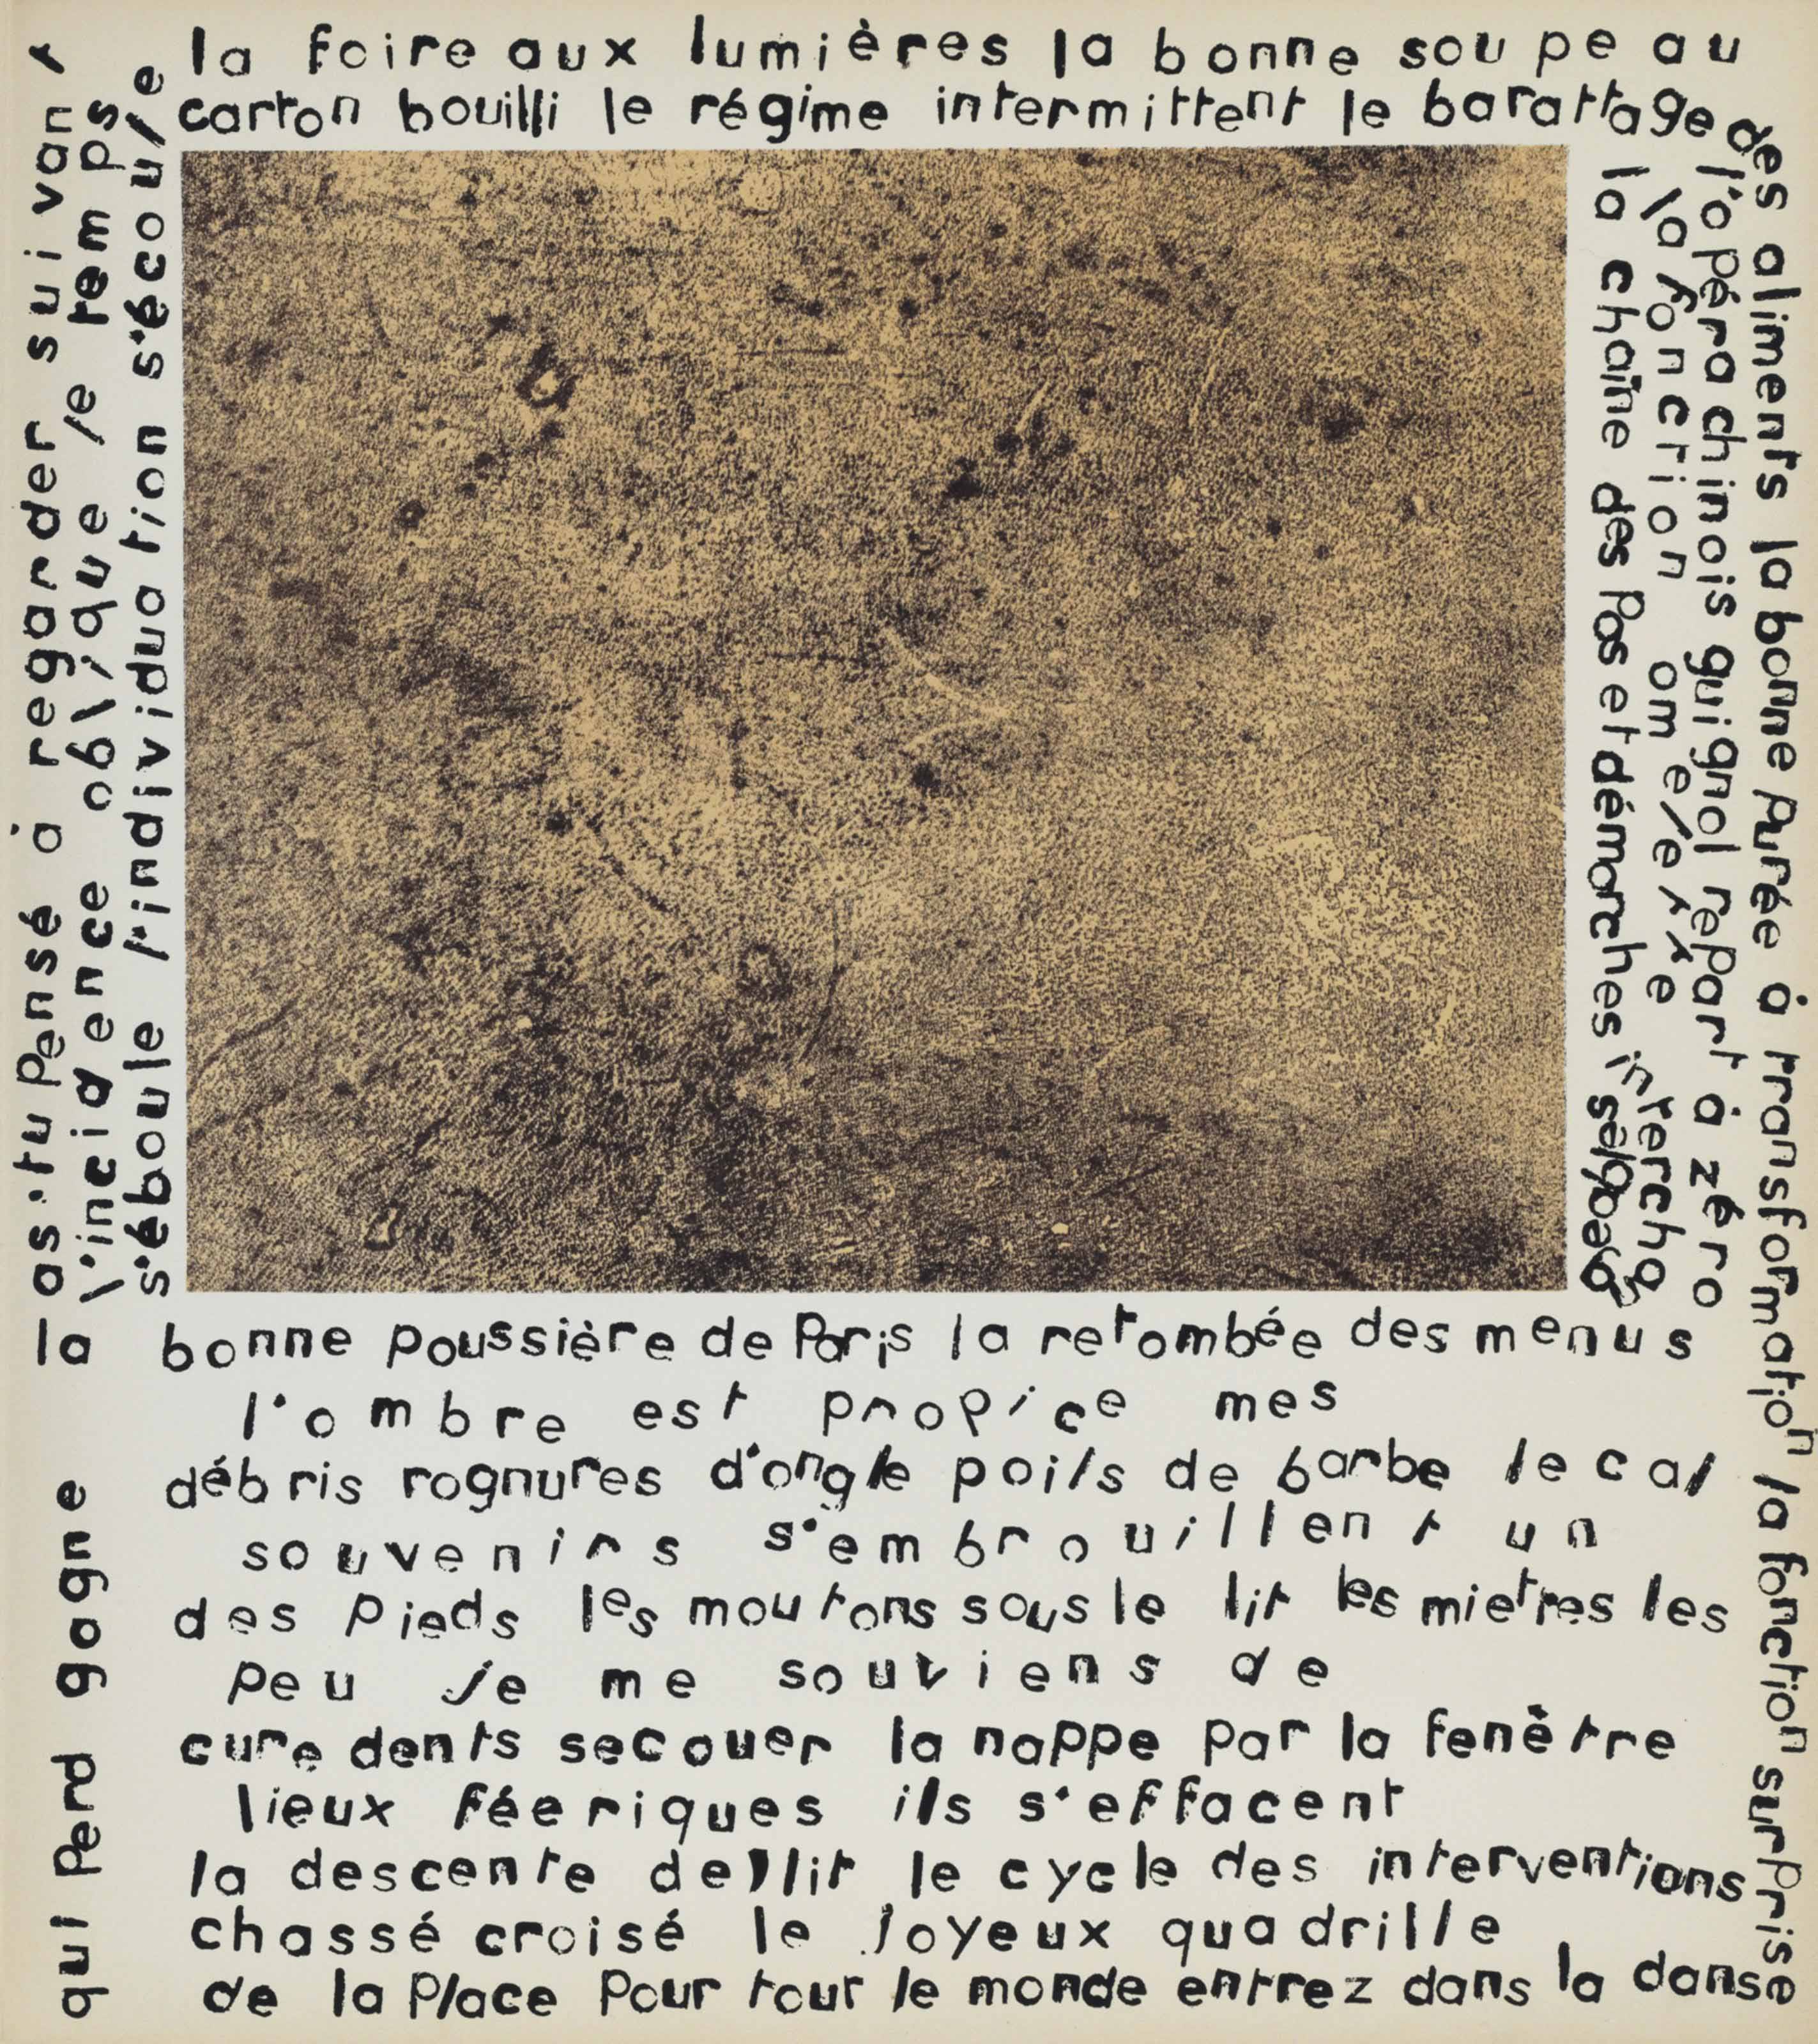 la foire aux lumières la bonne soupe au
carton bouilli le régime intermittent le barattage
des aliments la bonne purée à transformation la fonction surprise
l'opéra chinois guignol repart à zéro
la fonction omelette
la chaîne des pas et démarches interchangeables
as-tu pensé à regarder suivant
l'incidence oblique le temps
s'éboule l'individuation s'écoule
la bonne poussière de Paris la retombée des menus
l'ombre est propice mes
débris rognures d'ongle poils de barbe le cal
souvenirs s'embrouillent un
des pieds les moutons sous le lit les miettes les
peu je me souviens de
cure dents secouer la nappe par la fenêtre
lieux féeriques ils s'effacent
la descente de lit le cycle des interventions
chassé croisé le joyeux quadrille
de la place pour tout le monde entrez dans la danse
qui perd gagne